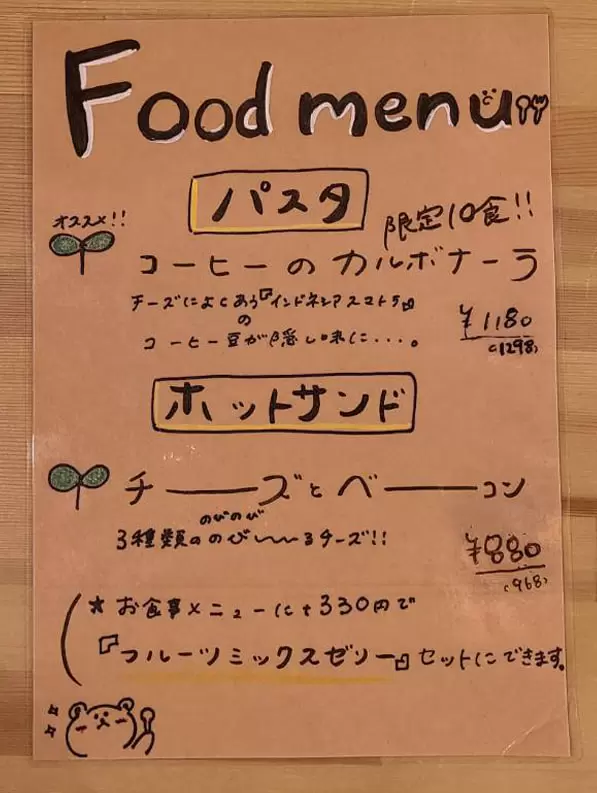 Food menu
パスタ
限定10食!!
オススメ!!
コーヒーのカルボナーラ
チーズによくあう『インドネシアスマトラ』
の
コーヒー豆が隠し味に・・・。
¥1180
(1298)
ホットサンド
チーズとベーコン
のびのび
3種類ののび〜〜るチーズ!!
¥880
(968)
★お食事メニューに+330円で
『フルーツミックスゼリー』セットにできます。